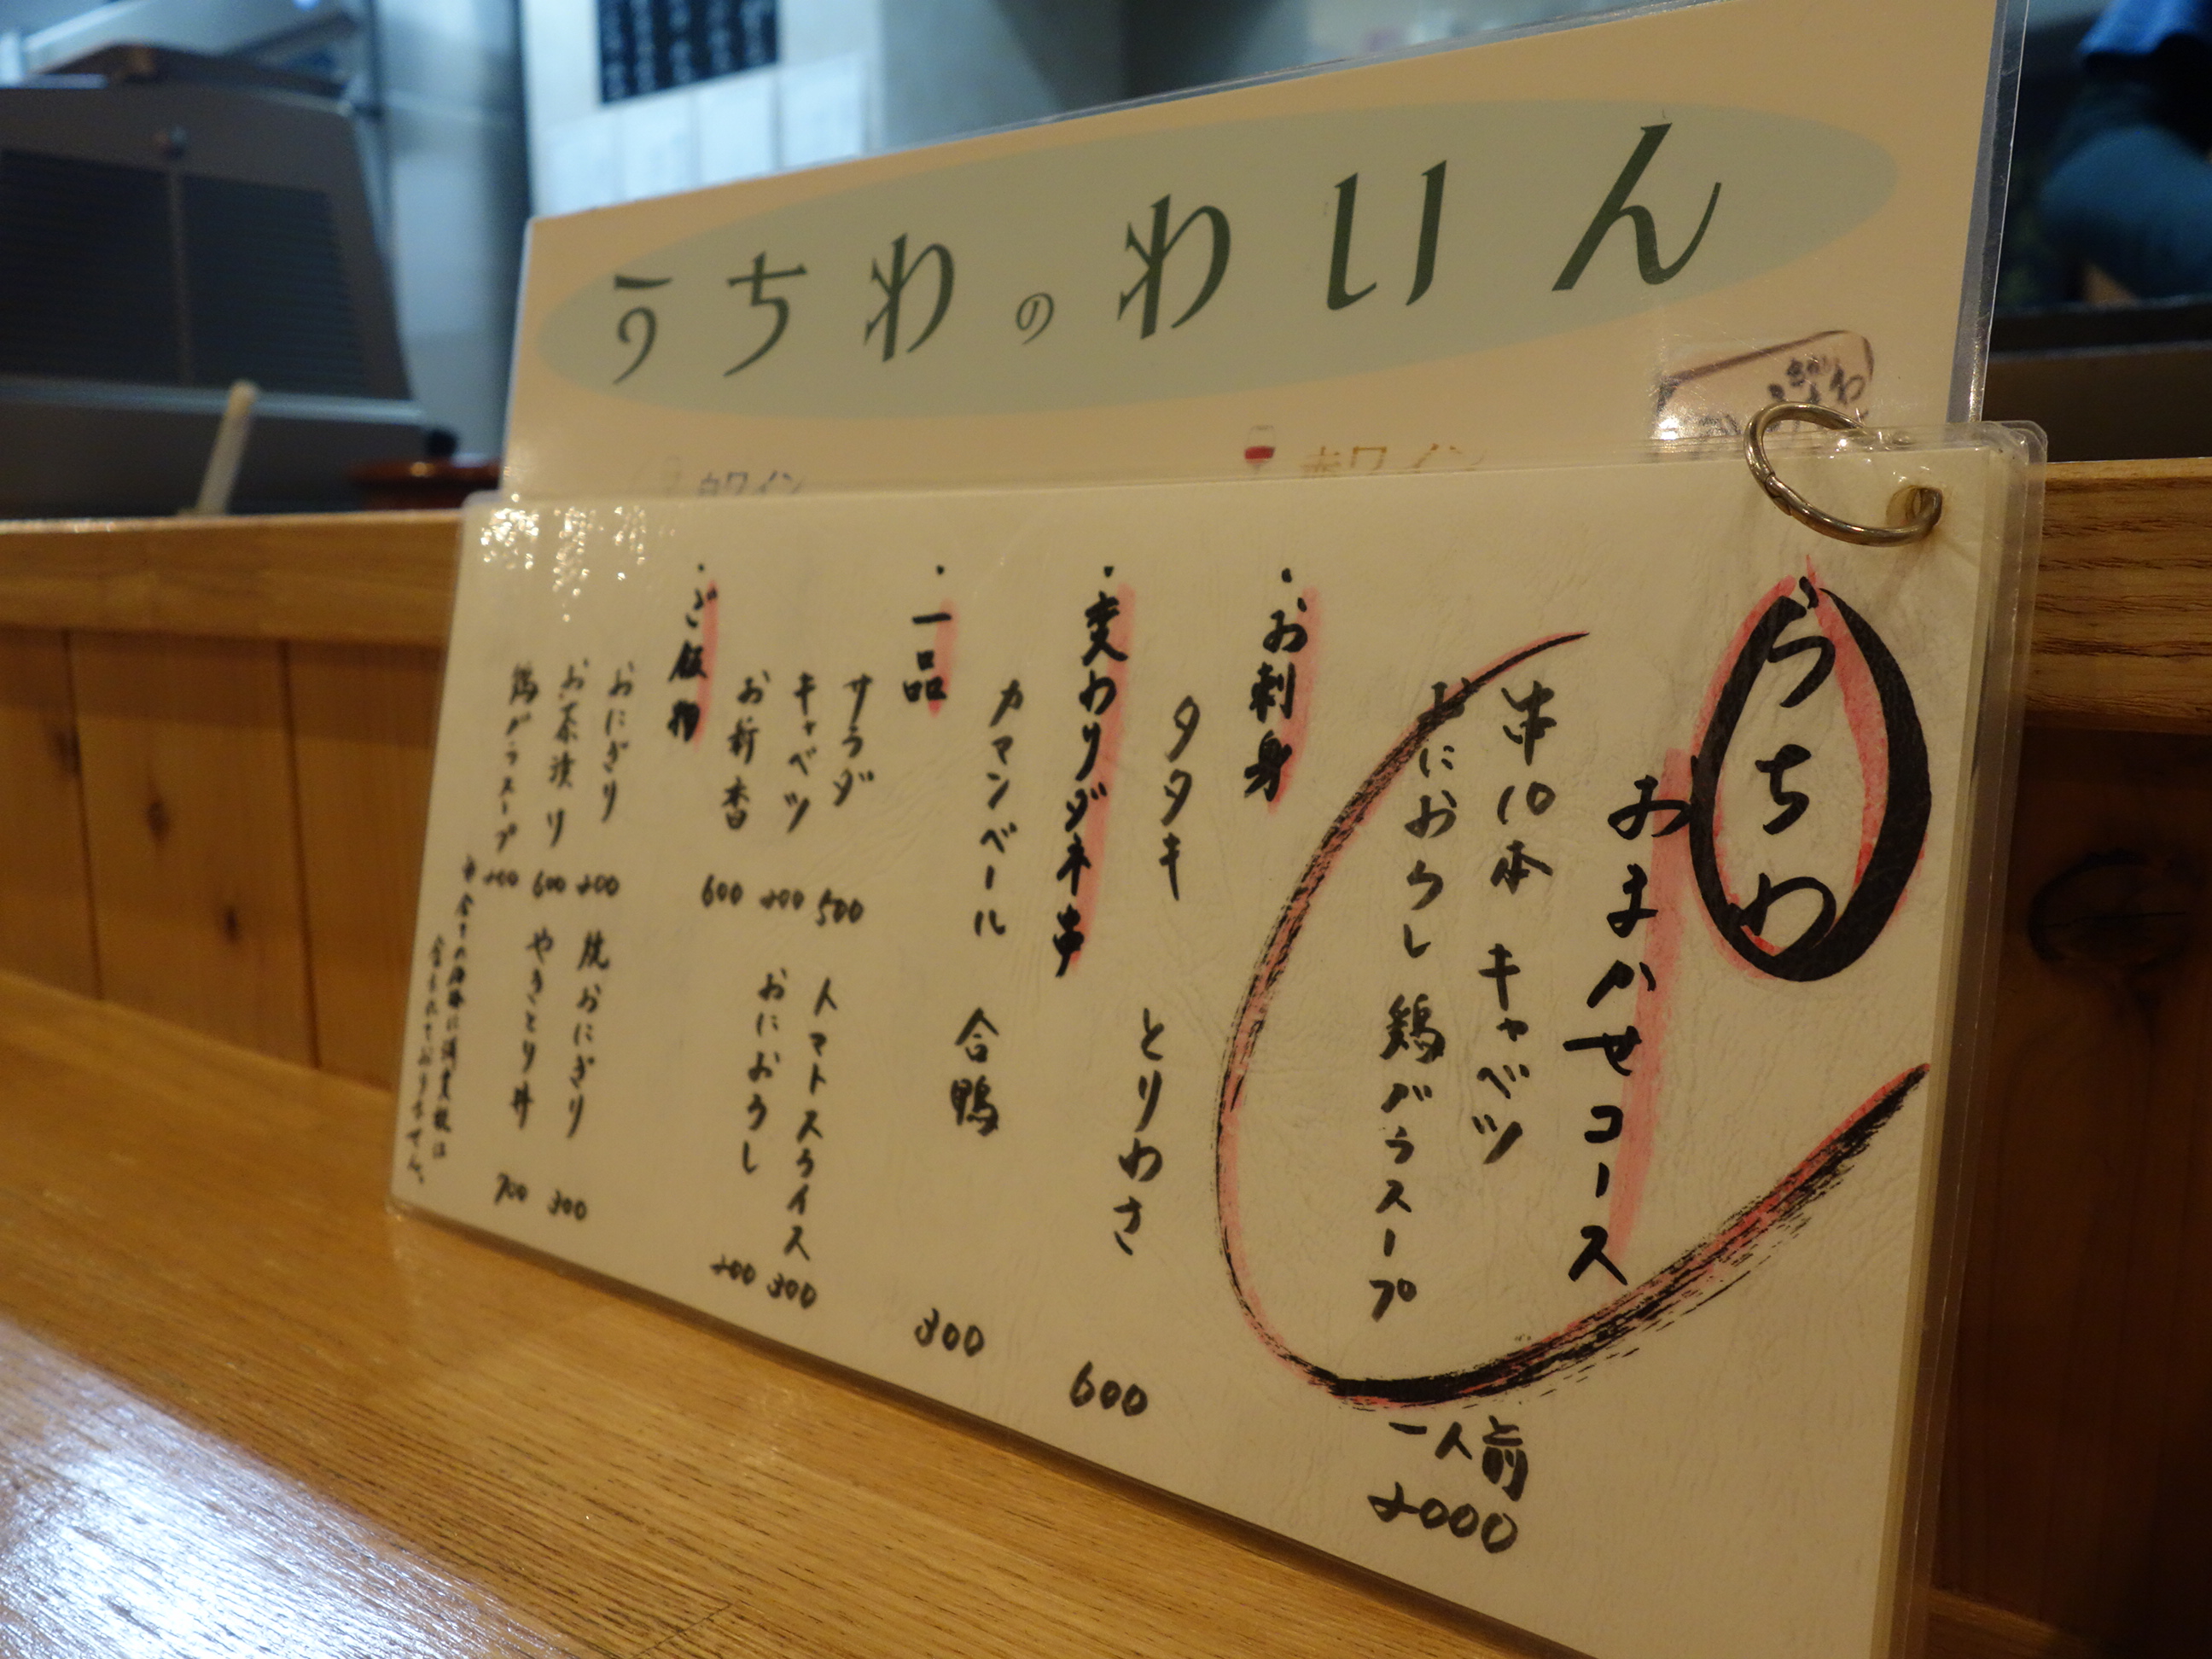 うちわのわいん
白ワイン
赤ワイン
うちわ
おまかせコース
串10本 キャベツ
おにおろし 鶏がらスープ
一人前
2000
・お刺身
タタキ とりわさ 600
・変わりダネ串
カマンベール 合鴨 300
・一品
サラダ 500 トマトスライス 300
キャベツ 200 おにおろし 200
お新香 600
・ご飯物
おにぎり 200 焼おにぎり 300
お茶漬り 600 やきとり丼 700
鶏がらスープ 200
※全ての価格に消費税は
含まれておりません。